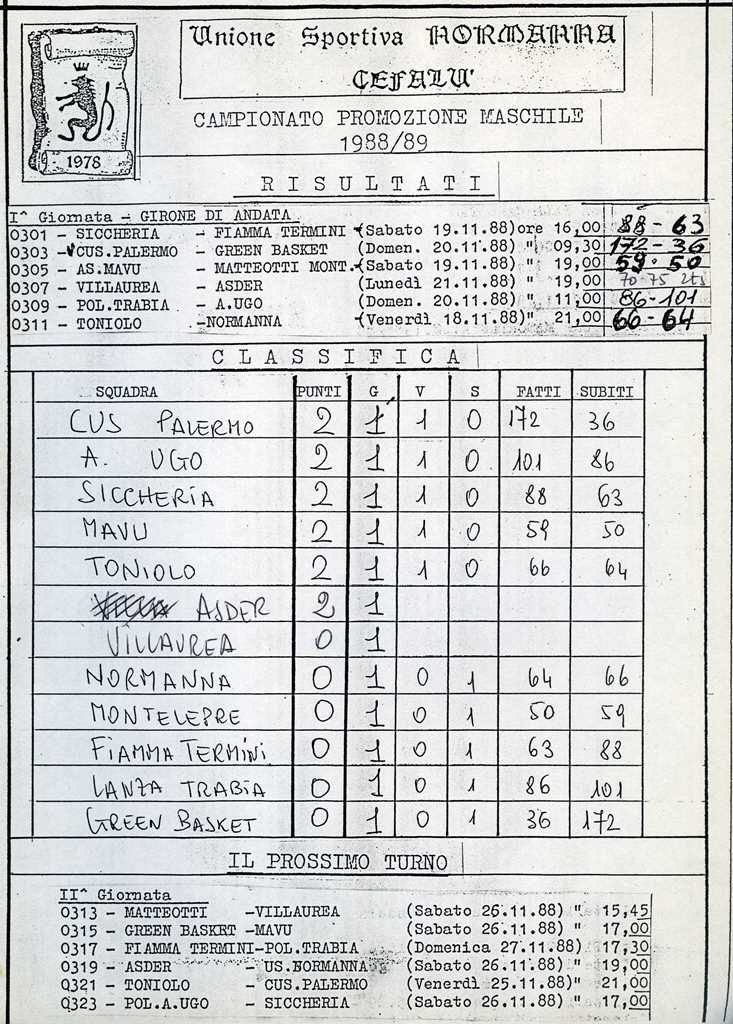 Unione Sportiva NORMANNA
CEFALU'
1978
CAMPIONATO PROMOZIONE MASCHILE
1988/89
RISULTATI
I^ Giornata - GIRONE DI ANDATA
0301 - SICCHERIA - FIAMMA TERMINI -(Sabato 19.11.88)ore 16,00 88 - 63
0303 - CUS.PALERMO - GREEN BASKET (Domen. 20.11.88) " 09,30 172 - 36
0305 - AS.MAVU - MATTEOTTI MONT.-(Sabato 19.11.88) " 19,00 59 - 50
0307 - VILLAUREA - ASDER (Lunedì 21.11.88) " 19,00 70-75 2ts
0309 - POL.TRABIA - A.UGO (Domen. 20.11.88) " 11,00 86-101
0311 - TONIOLO -NORMANNA -(Venerdì 18.11.88)" 21,00 66-64
CLASSIFICA
SQUADRA PUNTI G V S FATTI SUBITI
CUS PALERMO 2 1 1 0 172 36
A. UGO 2 1 1 0 101 86
SICCHERIA 2 1 1 0 88 63
MAVU 2 1 1 0 59 50
TONIOLO 2 1 1 0 66 64
ASDER 2 1
VILLAUREA 0 1
NORMANNA 0 1 0 1 64 66
MONTELEPRE 0 1 0 1 50 59
FIAMMA TERMINI 0 1 0 1 63 88
LANZA TRABIA 0 1 0 1 86 101
GREEN BASKET 0 1 0 1 36 172
IL PROSSIMO TURNO
II^ Giornata
0313 - MATTEOTTI -VILLAUREA (Sabato 26.11.88) " 15,45
0315 - GREEN BASKET -MAVU (Sabato 26.11.88) " 17,00
0317 - FIAMMA TERMINI-POL.TRABIA (Domenica 27.11.88) 17,30
0319 - ASDER - US.NORMANNA (Sabato 26.11.88) " 19,00
0321 - TONIOLO - CUS.PALERMO (Venerdì 25.11.88)" 21,00
0323 - POL.A.UGO - SICCHERIA (Sabato 26.11.88) " 17,00